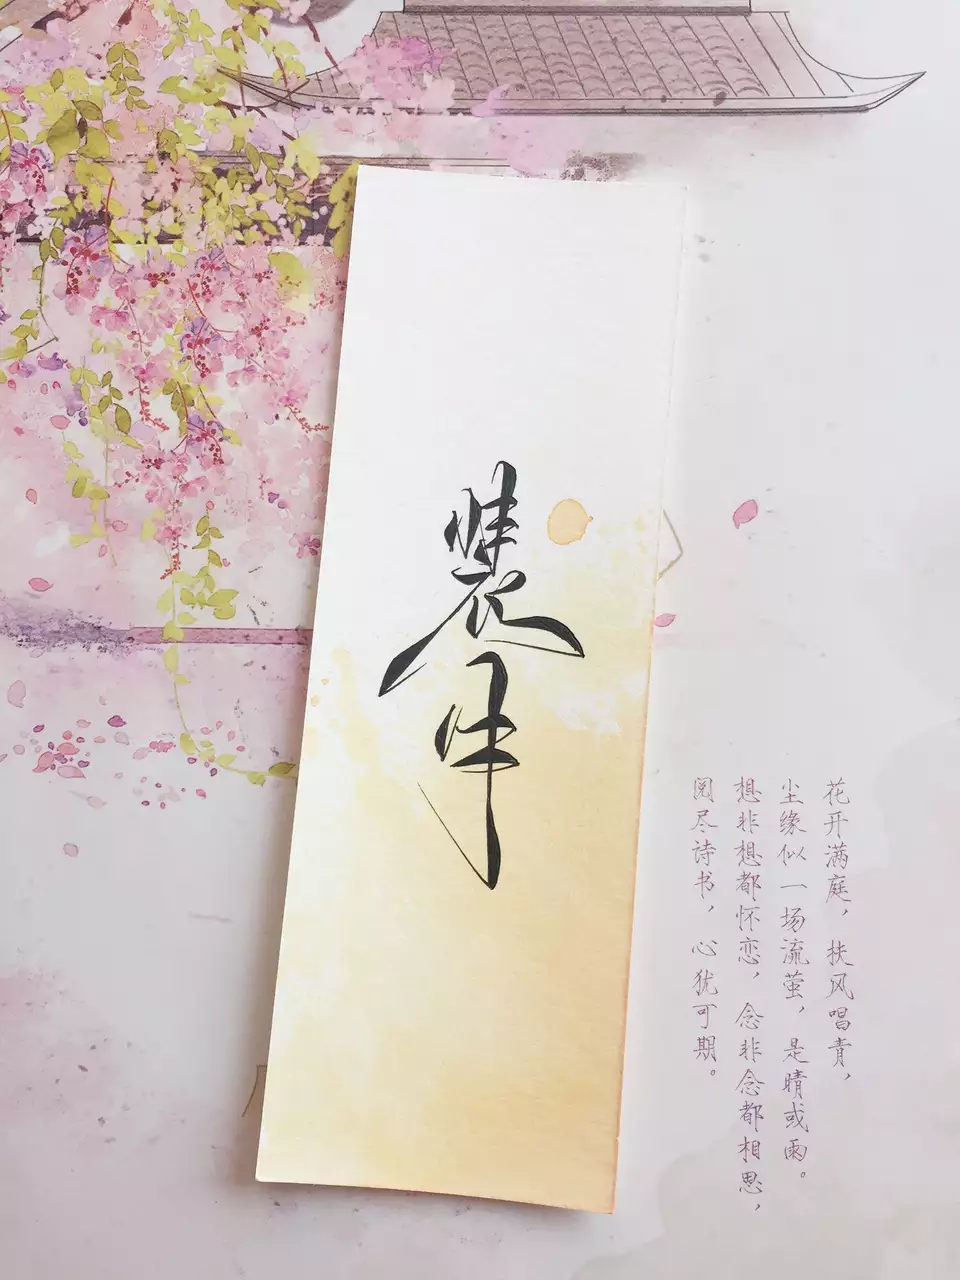 花开满庭，扶风唱青，
尘缘似一场流萤，是晴或雨。
想非想都怀恋，念非念都相思，
阅尽诗书，心犹可期。